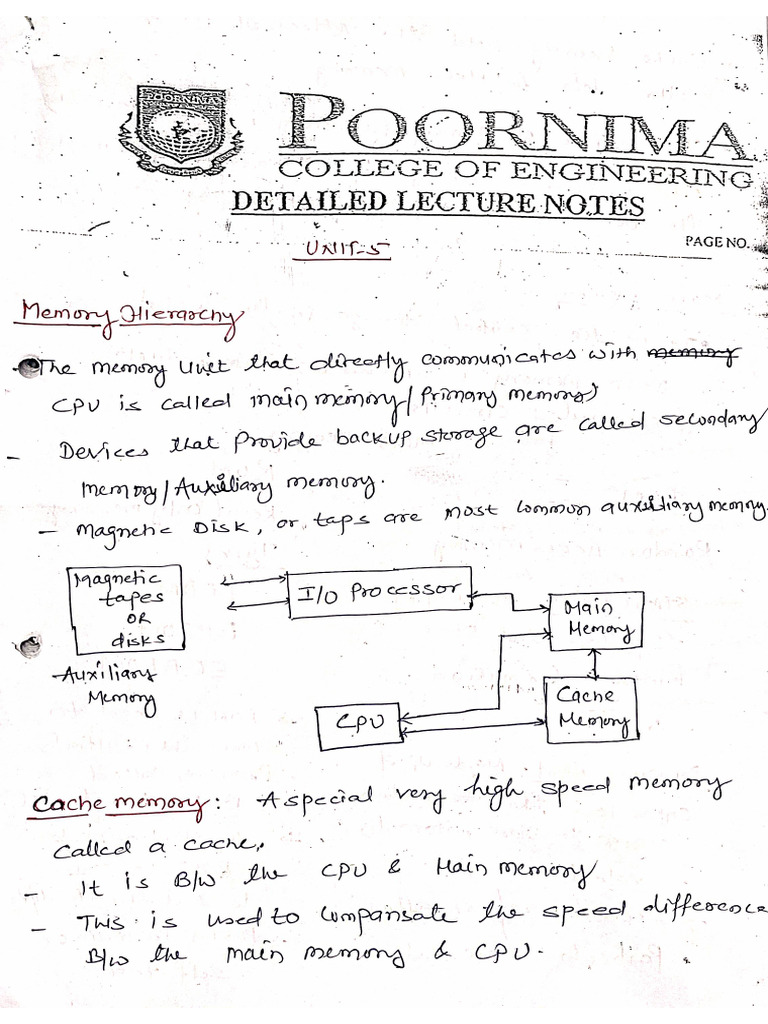 POORNIMA
POORNIMA
COLLEGE OF ENGINEERING
DETAILED LECTURE NOTES
PAGE NO.
UNIT-5
Memory Hierarchy
- The memory unit that directly communicates with memory
CPU is called main memory/(Primary memory)
- Devices that provide backup storage are called secondary
memory/Auxiliary memory.
- Magnetic Disk, or taps are most common auxiliary memory.
Magnetic
tapes
OR
disks
I/O Processor
Main
Memory
Auxiliary
Memory
CPU
Cache
Memory
Cache memory: A special very high speed memory
called a cache.
- It is B/w the CPU & Main memory
- This is used to Compansate the speed difference
B/w the main memory & CPU.